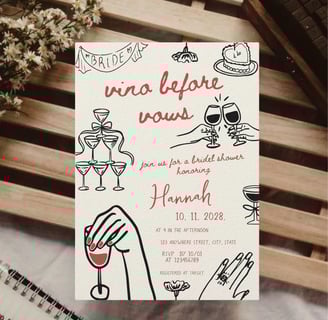 BRIDE
vino before
vows
join us for a bridal shower
honoring
Hannah
10. 11. 2028.
AT 4 IN THE AFTERNOON
123 ANYWHERE STREET, CITY, STATE
RSVP BY 10/01
AT 123456789
REGISTERED AT TARGET